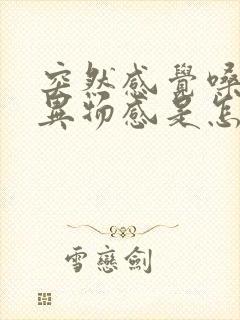 突然感覺嗓
異物感是怎
雪戀劍